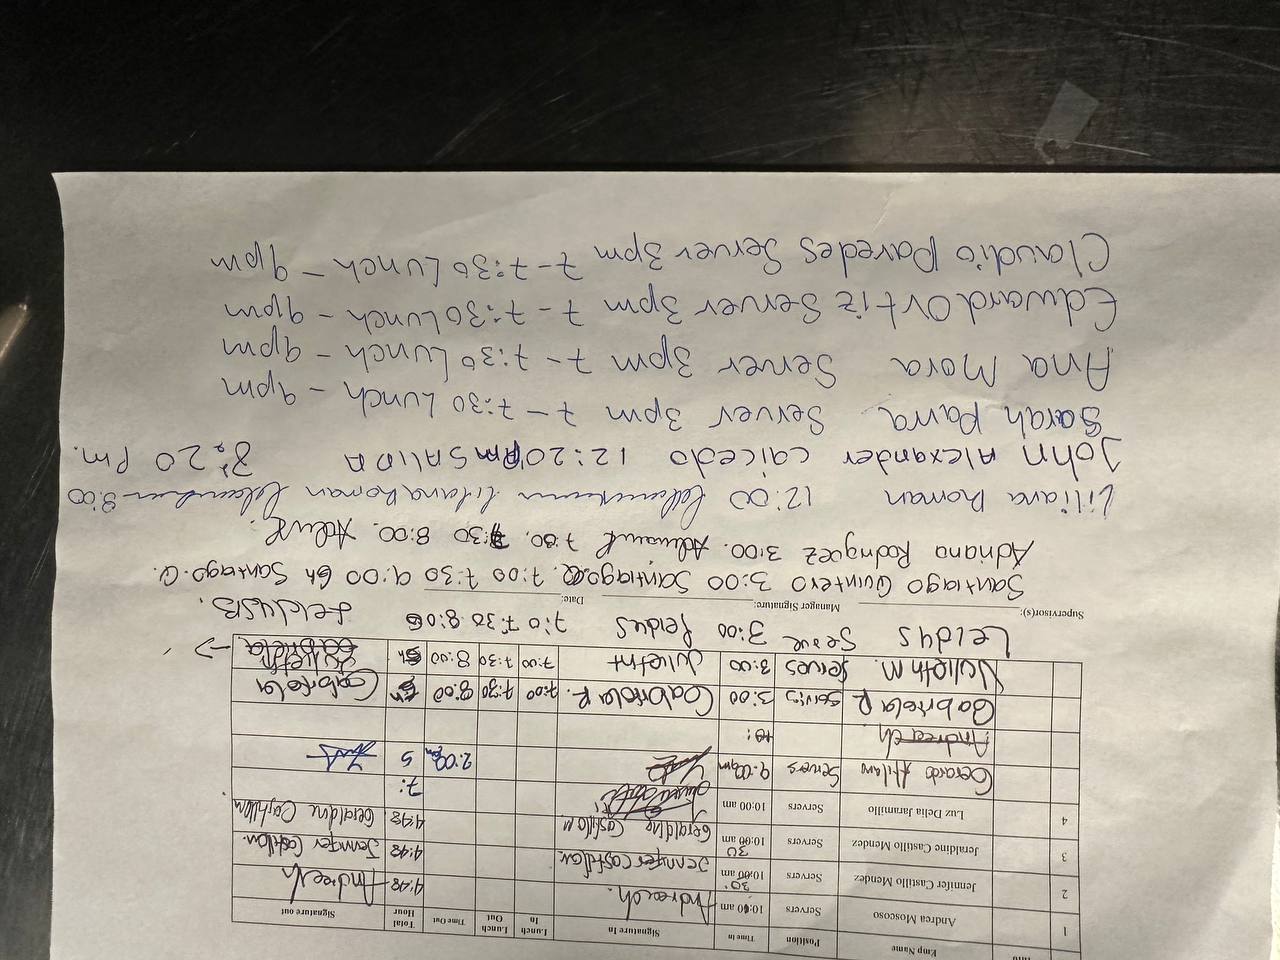 Info Emp Name Position Time In Signature In Lunch In Lunch Out Time Out Total Hour Signature out
1 Andrea Moscoso Servers 10:00 am 30 Andreach. 4:48 Andreach
2 Jennifer Castillo Mendez Servers 10:00 am 30 Jennifer Castillo M. 4:48 Jennifer Castillo
3 Jeraldine Castillo Mendez Servers 10:00 am Geraldine Castillo M 4:48 Geraldine Castillo
4 Luz Delia Jaramillo Servers 10:00 am 7:
Gerardo Servers 9:00am 2:00pm 5
Andrea ch 10:
Gabriela R Serves 3:00 Gabriela R. 7:00 7:30 8:00 Gabriela
Julieth M. Serves 3:00 Julieth 7:00 7:30 8:00 5h Julieth
Leidys Serve 3:00 Leidys 7:0 7:30 8:00 Leidys B.
Supervisor(s): Manager Signature: Date:
Santiago Quintero 3:00 Santiago.Q. 7:00 7:30 9:00 6h Santiago.Q.
Adriana Rodriguez 3:00. 7:00. 7:30 8:00.
Liliana Roman 12:00 Liliana Roman 8:00
John Alexander caicedo 12:20 Pm SALIDA 8:20 Pm.
Sarah Parra Server 3pm 7-7:30 Lunch - 9pm
Ana Mora Server 3pm 7-7:30 Lunch - 9pm
Edward Ortiz Server 3pm 7-7:30 Lunch - 9pm
Claudio Paredes Server 3pm 7-7:30 Lunch - 9pm